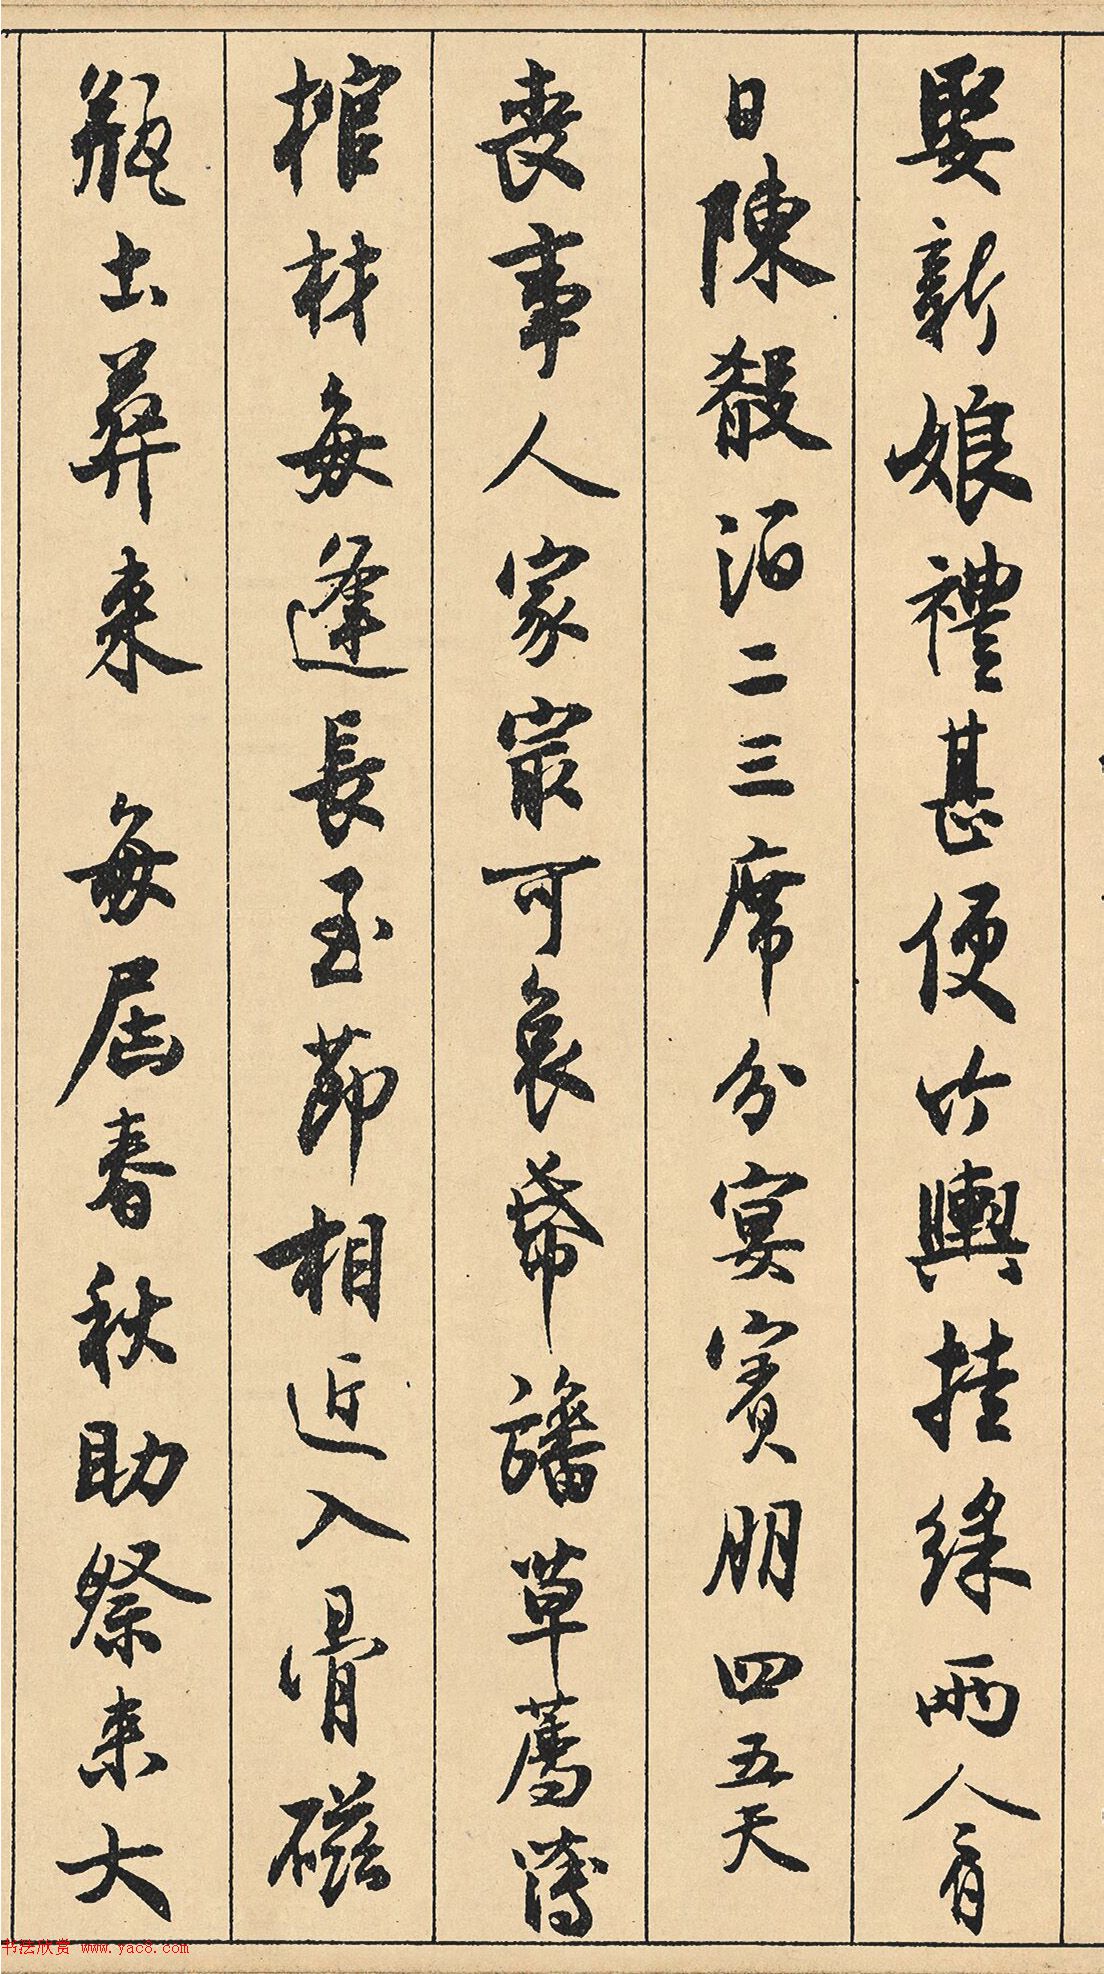 娶新娘禮甚便竹輿挂綵兩人肩
日陳殽酒二三席分宴賓朋四五天
喪事人家最可哀幕旛草薦薄
棺材每逢長至節相近入骨磁
瓶土葬來 每屆春秋助祭來大
书法欣赏 www.yac8.com